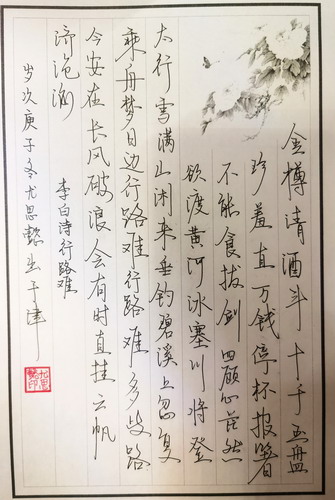 金樽清酒斗十千玉盘
珍羞直万钱停杯投箸
不能食拔剑四顾心茫然
欲渡黄河冰塞川将登
太行雪满山闲来垂钓碧溪上忽复
乘舟梦日边行路难行路难多歧路
今安在长风破浪会有时直挂云帆
济沧海
李白诗行路难
岁次庚子冬尤思懿书于津
尤思懿印